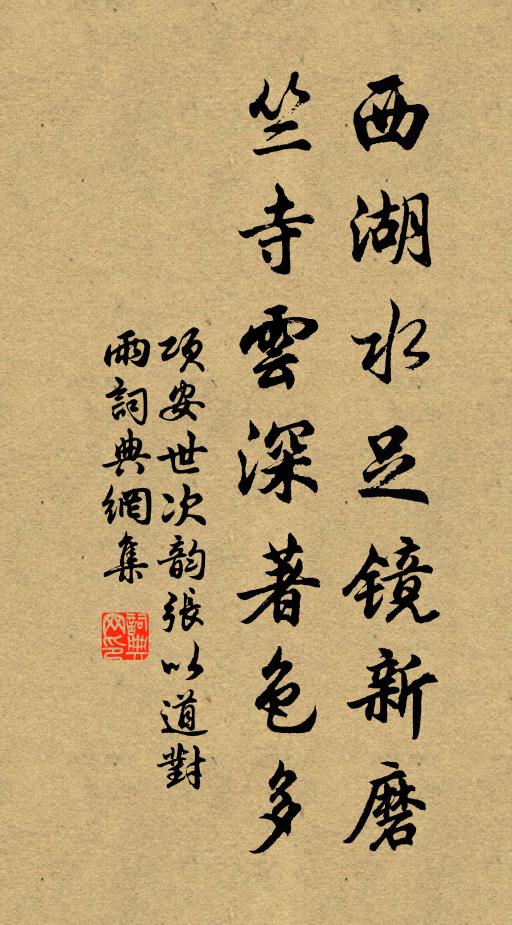 西湖水足镜新磨
竺寺雲深著色多
项安世次韵張以道對
雨詞典網集
詞典網印